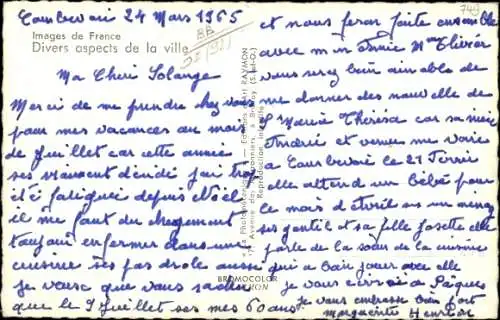 Courbevoie 24 Mars 1965
Images de France
Divers aspects de la ville
Ma Cheri Solange
Merci de me prendre chez vous
pour mes vacances au mois
de Juillet car cette année
ses vraiment décidé j'ai très
été fatiguée depuis Noël
il me faut du changement
toujour enfermer dans une
cuisine ses pas drole aussi
je veux que vous
que le 9 Juillet ses mes 60 ans
et nous feron fête ensemble
avec m m Annie Mme
vous serez bien aimable de
me donner des nouvelle de
Maria Thérésa car sa
Andrée et venue me voire
a Courbevoie le 21
elle attend un Bébé pour
le mois d'Avril
ses gentil et sa fille Josette elle
parle de la sœur de la cuisine
qui a bien jouer avec elle
je vous a Pâques
je vous embrasse bien fort
Marguerite
BROMOCOLOR
RAYMON